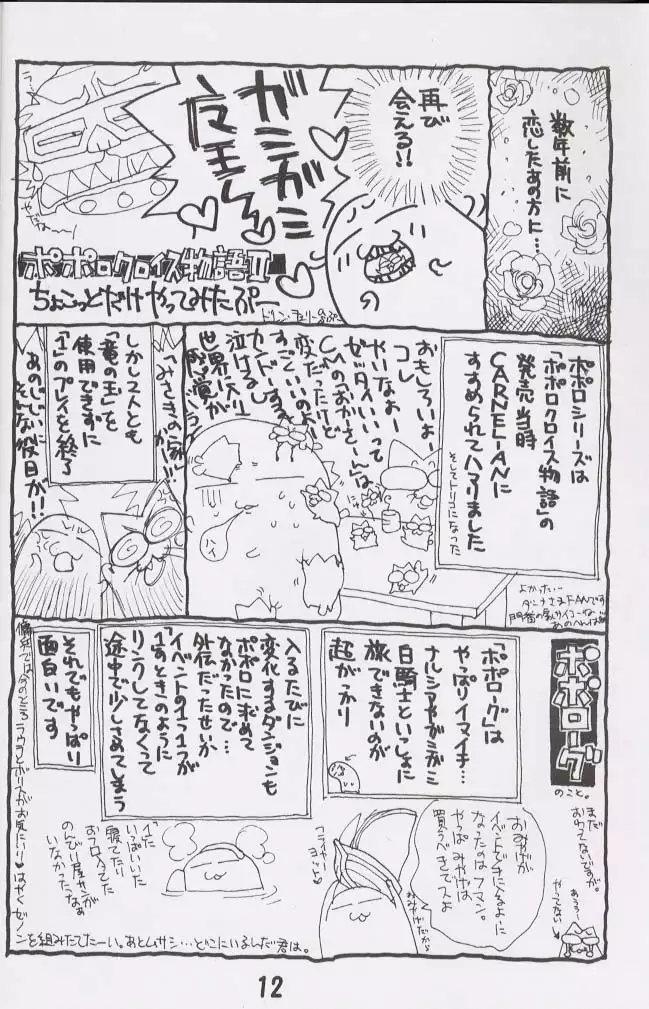 数年前に
恋したあの方に…
再び
会える!!
ガミガミ
魔王
ポポロクロイス物語II
ちょこっとだけやってみたぷー
ポポロシリーズは
「ポポロクロイス物語」の
発売当時
CARNELIANに
すすめられてハマりました
そしてトリコになった
おもしろいよぉー
コレ
やいなよぉー
ゼッタイいいって
CMの「おかぁさーん」は
変だったけど
すごくいいのよー
カンドーするよ
泣けるし
世界に入り
ハイ
「みさきの家」
しかし2人とも
「竜の玉」を
使用できずに
「1」のプレイを終了
あのじじいに
そんな役目が!!
よかった…
ポポローグ
のこと。
まだ
おわってないですが。
あうう…
やってない
「ポポローグ」は
やっぱりイマイチ…
ナルシアやガミガミ
白騎士といっしょに
旅できないのが
超がっかり
入るたびに
変化するダンジョンも
ポポロに求めて
なかったので…
外伝だったせいか
イベントの1つ1つが
「1」のときのように
リンクしてなくって
途中で少しさめてしまう
それでもやっぱり
面白いです
おみやげが
イベントで手に入るように
なったのはフマン。
やっぱみやげは
買うべきでスよ
おみやげだから
フライヤー
ヨット
「1」だと
いっぱいいた
寝てたり
おフロ入ってた
のんびり屋サンが
いなかったなぁ
はやくゼノンを組みたてたーい。あとムサシ…どこにいるんだ君は。
12